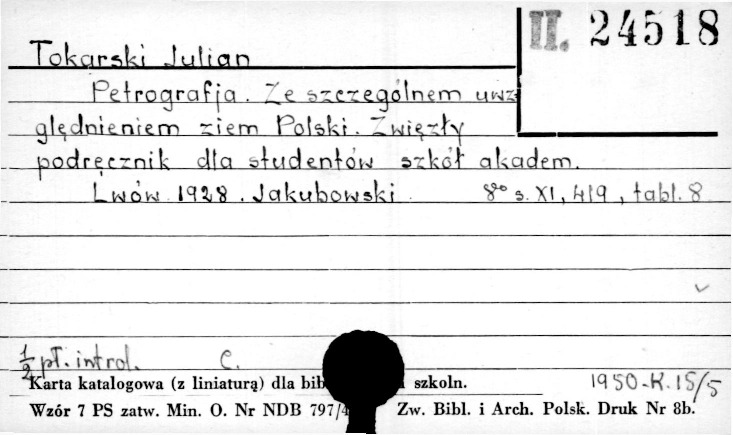 II. 24518
Tokarski Julian
Petrografja. Ze szczególnem uwz
ględnieniem ziem Polski. Zwięzły
podręcznik dla studentów szkół akadem.
Lwów 1928. Jakubowski. 8° s. XI, 419, tabl. 8
1/2 pł. introl. C.
Karta katalogowa (z liniaturą) dla bib szkoln. 1950-K.15/5
Wzór 7 PS zatw. Min. O. Nr NDB 797/4 Zw. Bibl. i Arch. Polsk. Druk Nr 8b.